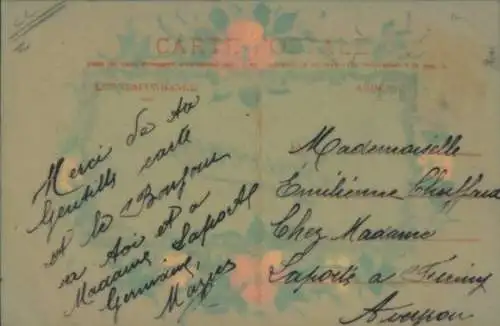 CARTE POSTALE
CORRESPONDANCE
ADRESSE
Merci de ta
Gentille carte
et le Bonjour
a toi et a
Madame Laporte
Germaine,
Mazies
Mademoiselle
Emilienne
Chez Madame
Laporte a Firmy
Aveyron